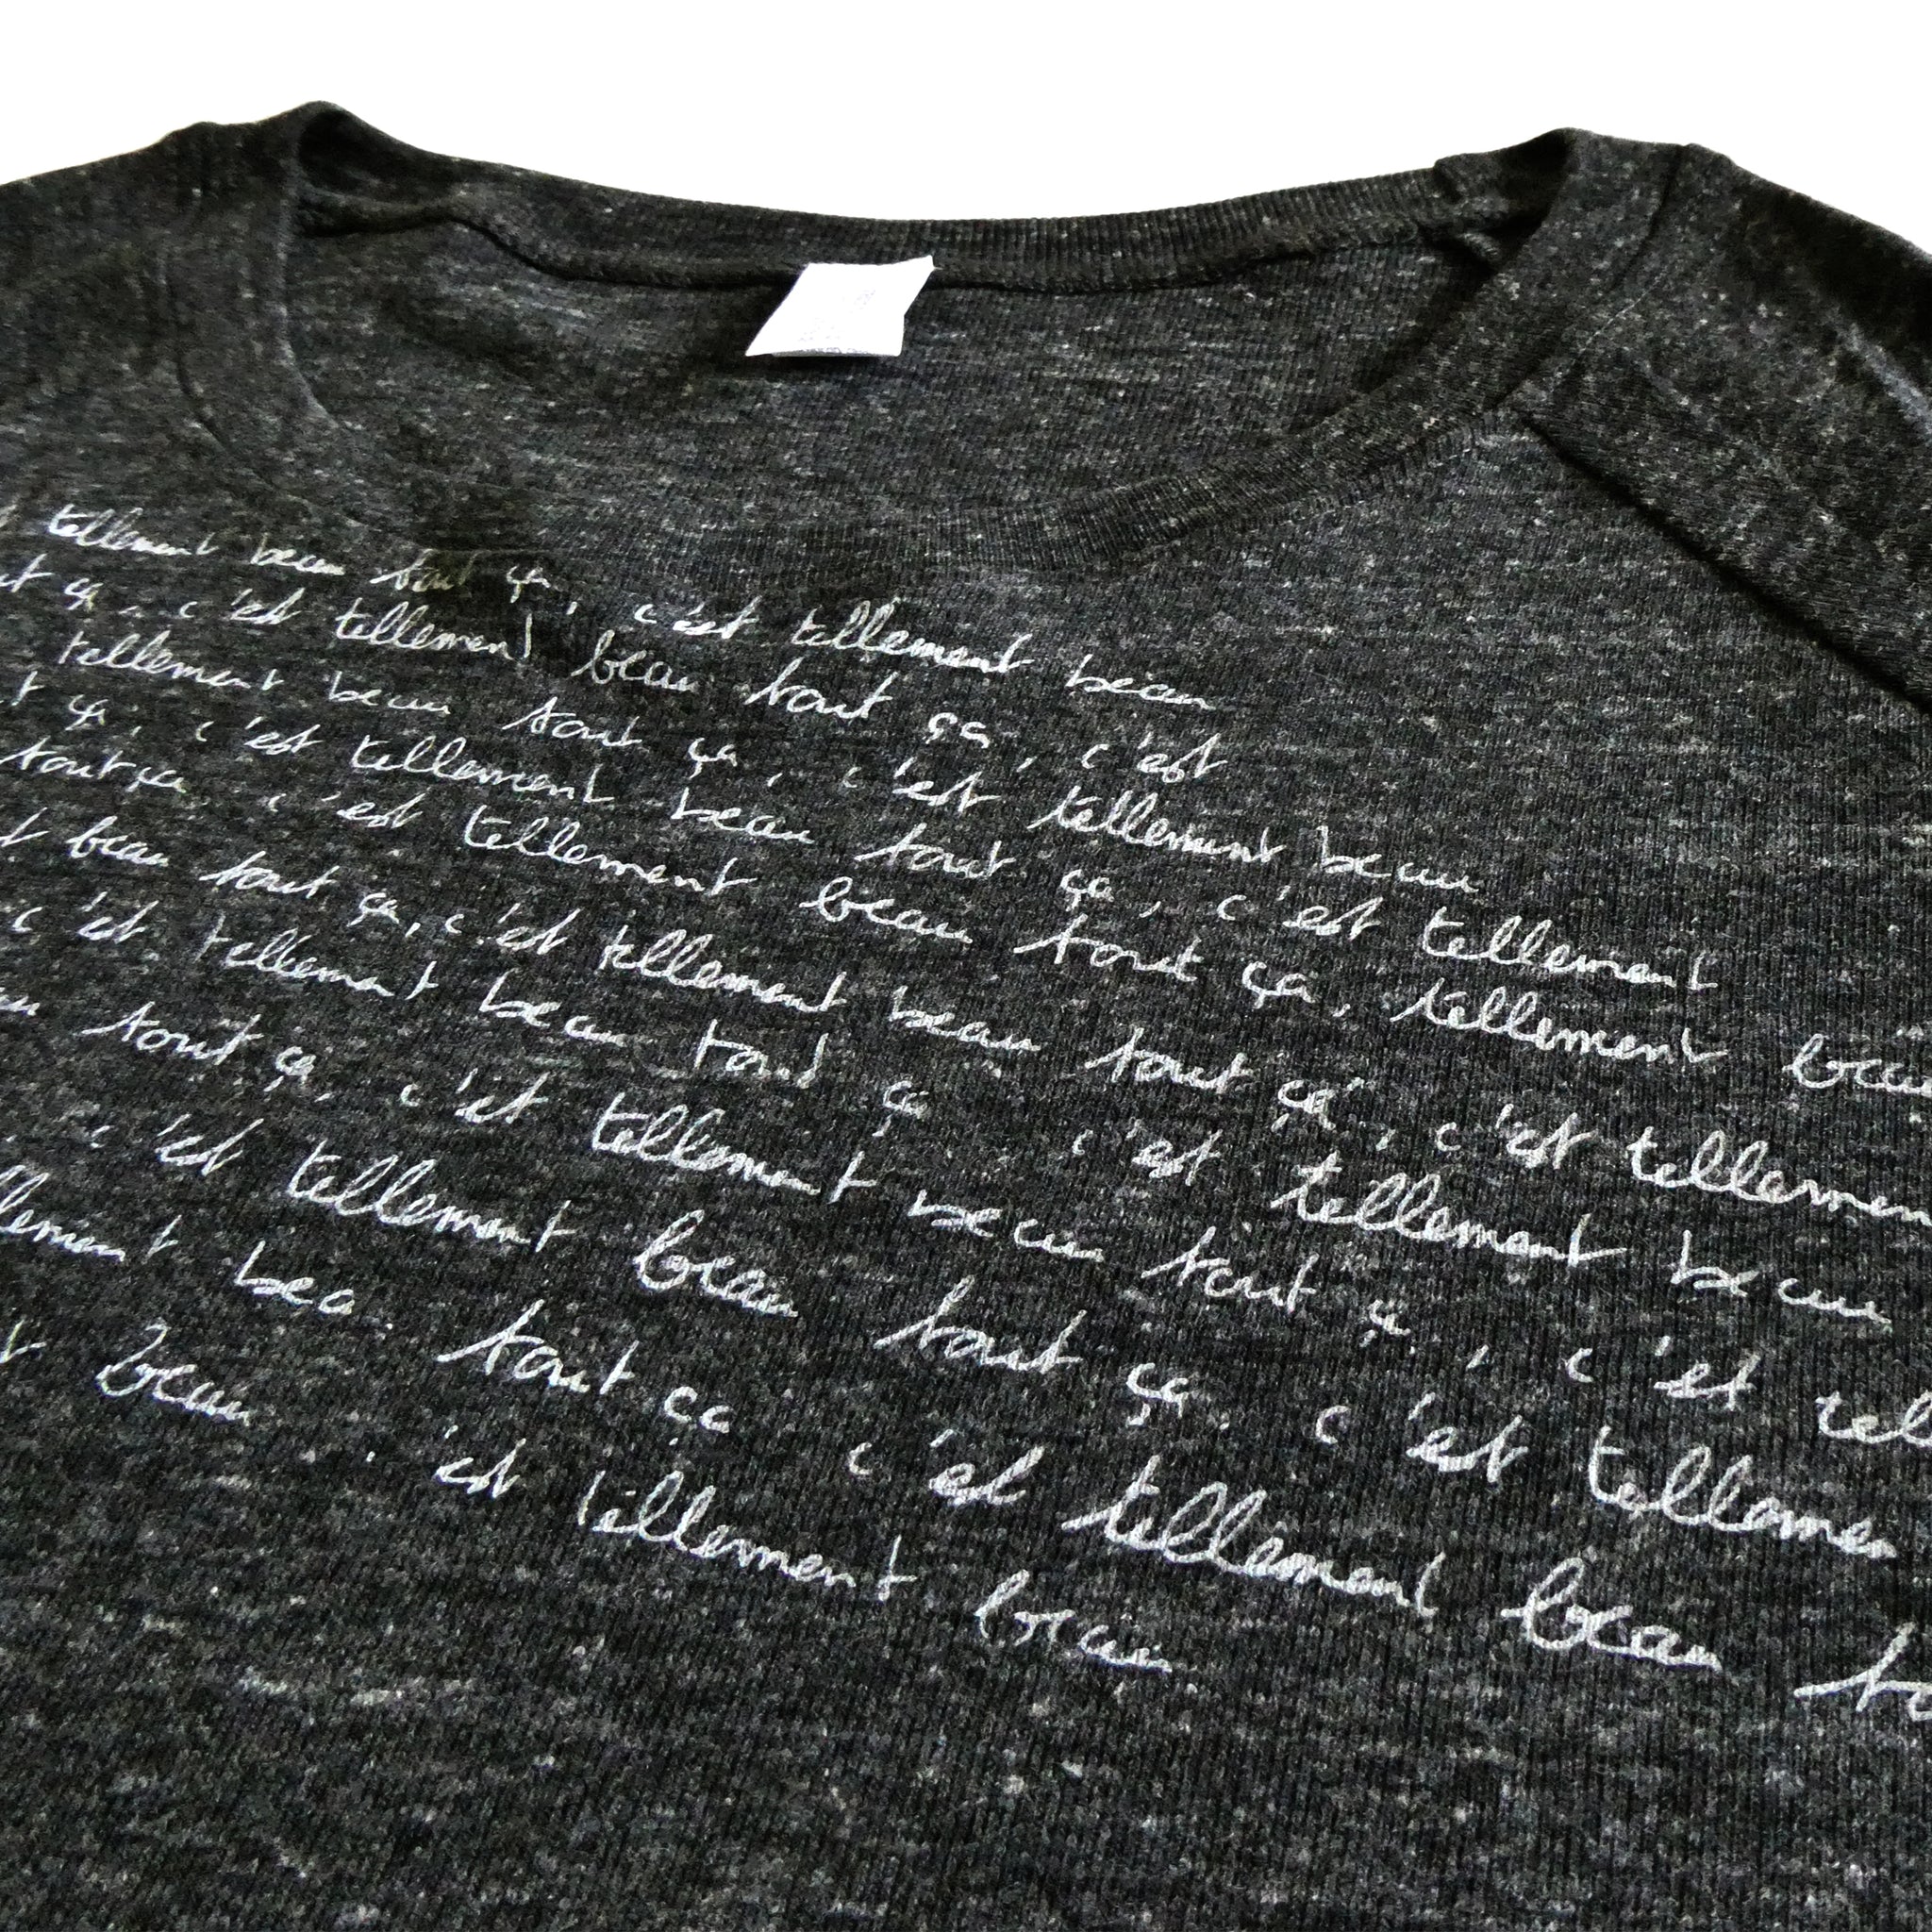 tellement beau tout ça, c'est tellement beau
ça, c'est tellement beau tout ça, c'est
tellement beau tout ça, c'est tellement beau
ça, c'est tellement beau tout ça, c'est tellement
tout ça, c'est tellement beau tout ça, tellement beau
beau tout ça, c'est tellement beau tout ça, c'est tellement
c'est tellement beau tout ça c'est tellement beau
tout ça, c'est tellement beau tout ça, c'est
c'est tellement beau tout ça, c'est tellement
beau tout ça c'est tellement beau
beau c'est tellement beau